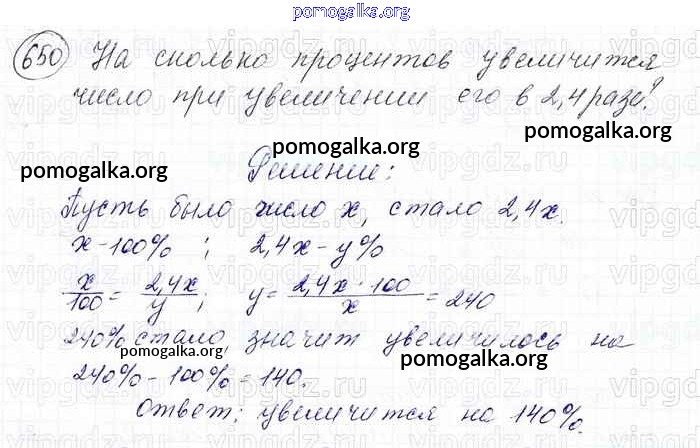 pomogalka.org
650 На сколько процентов увеличится
число при увеличении его в 2,4 раза?
pomogalka.org
pomogalka.org
Решение:
pomogalka.org
Пусть было число x, стало 2,4x.
x - 100% ; 2,4x - y%
x/100 = 2,4x/y ; y = 2,4x · 100/x = 240
240% стало, значит увеличилось на
pomogalka.org
pomogalka.org
240% - 100% = 140.
Ответ: увеличится на 140%.